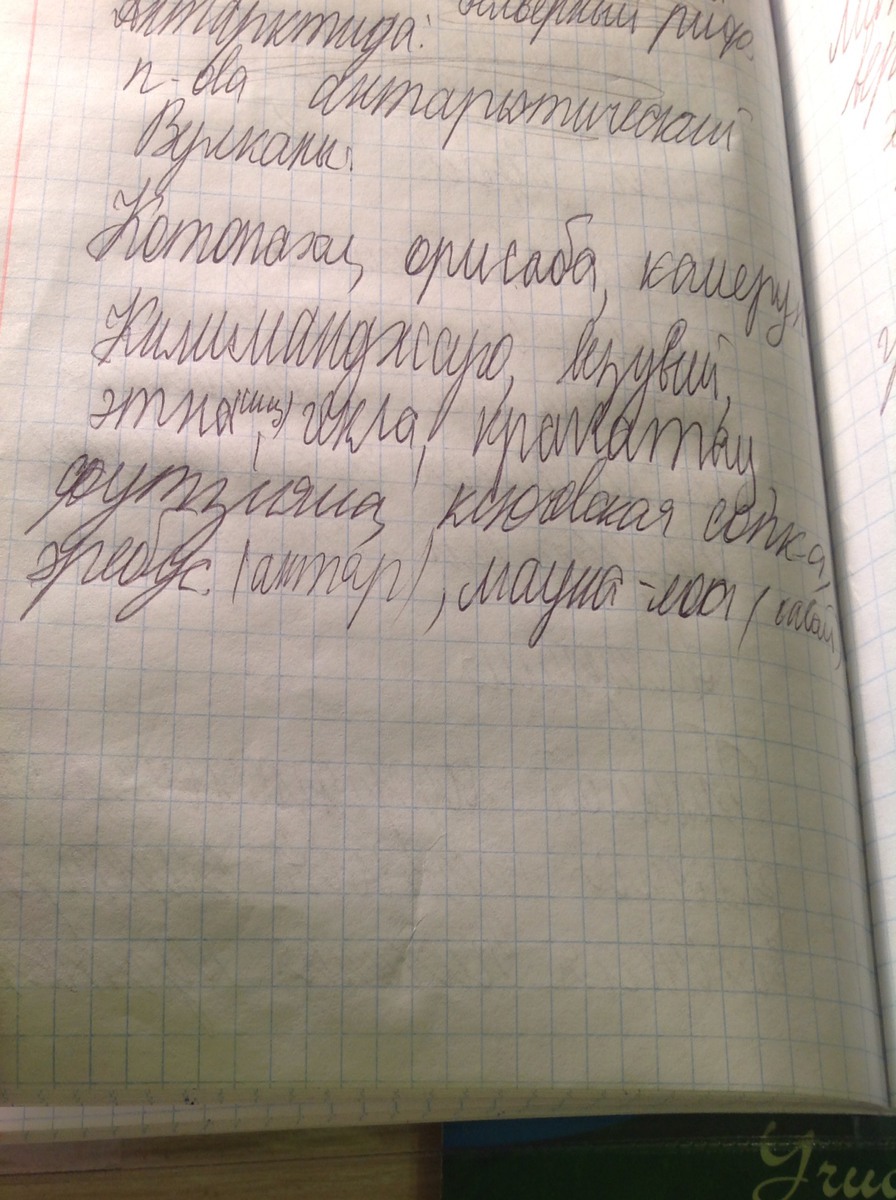 Антарктида: риф
п-ова антарктический
Вулканы:
Котопахи, орисаба, камерун
Килиманджаро, везувий,
этна (сиц), гекла, кракатау
фудзияма, ключевская сопка,
эребус (антар), мауна-лоа (гавай)